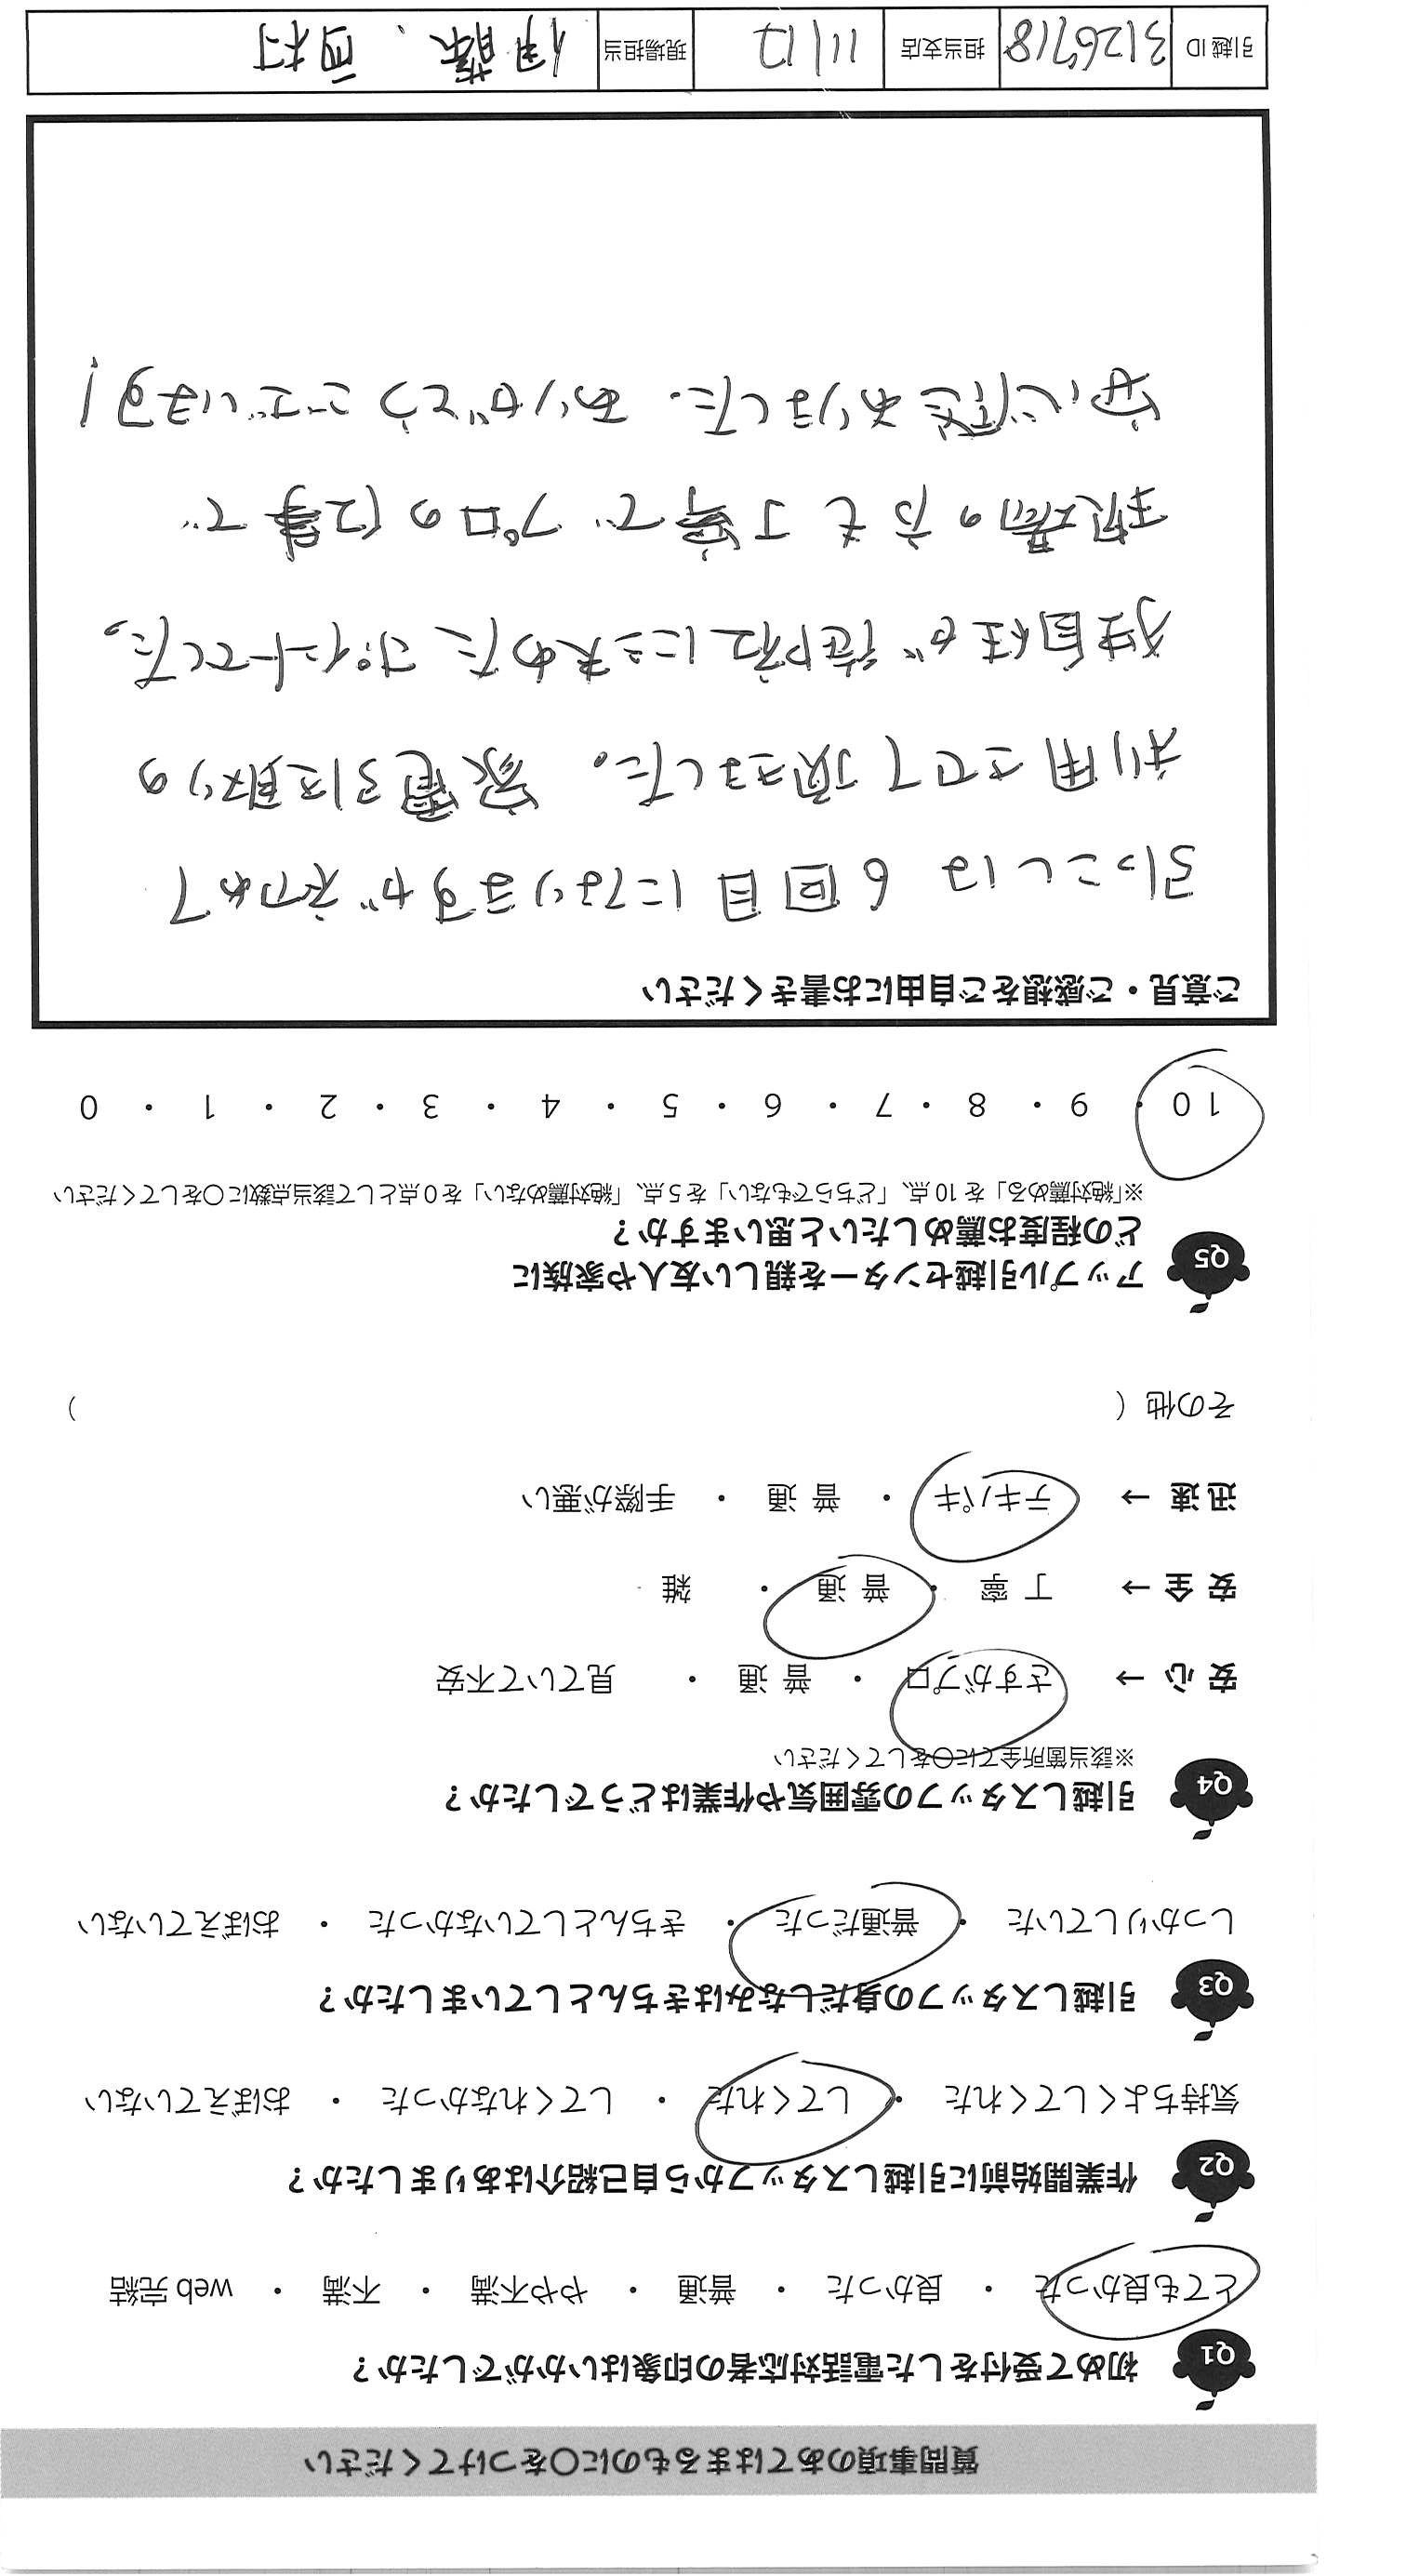 質問事項のあてはまるものに〇をつけてください
Q1 初めて受付をした電話対応者の印象はいかがでしたか？
とても良かった ・ 良かった ・ 普通 ・ やや不満 ・ 不満 ・ web 完結
Q2 作業開始前に引越しスタッフから自己紹介はありましたか？
気持ちよくしてくれた ・ してくれた ・ してくれなかった ・ おぼえていない
Q3 引越しスタッフの身だしなみはきちんとしていましたか？
しっかりしていた ・ 普通だった ・ きちんとしていなかった ・ おぼえていない
Q4 引越しスタッフの雰囲気や作業はどうでしたか？
※該当箇所全てに〇をしてください
安心 → さすがプロ ・ 普通 ・ 見ていて不安
安全 → 丁寧 ・ 普通 ・ 雑
迅速 → テキパキ ・ 普通 ・ 手際が悪い
その他（ ）
Q5 アップル引越センターを親しい友人や家族に
どの程度お薦めしたいと思いますか？
※「絶対薦める」を 10 点、「どちらでもない」を 5 点、「絶対薦めない」を 0 点として該当点数に〇をしてください
10 ・ 9 ・ 8 ・ 7 ・ 6 ・ 5 ・ 4 ・ 3 ・ 2 ・ 1 ・ 0
ご意見・ご感想をご自由にお書きください
引っこしは 6回目になりますが初めて
利用させて頂きました。家電引取りの
独自性が御社に決めたポイントでした。
現場の方も丁寧でプロの仕事で
安心感ありました。ありがとうございます！
引越 ID 3126718 担当支店 現場担当 伊藤、西村